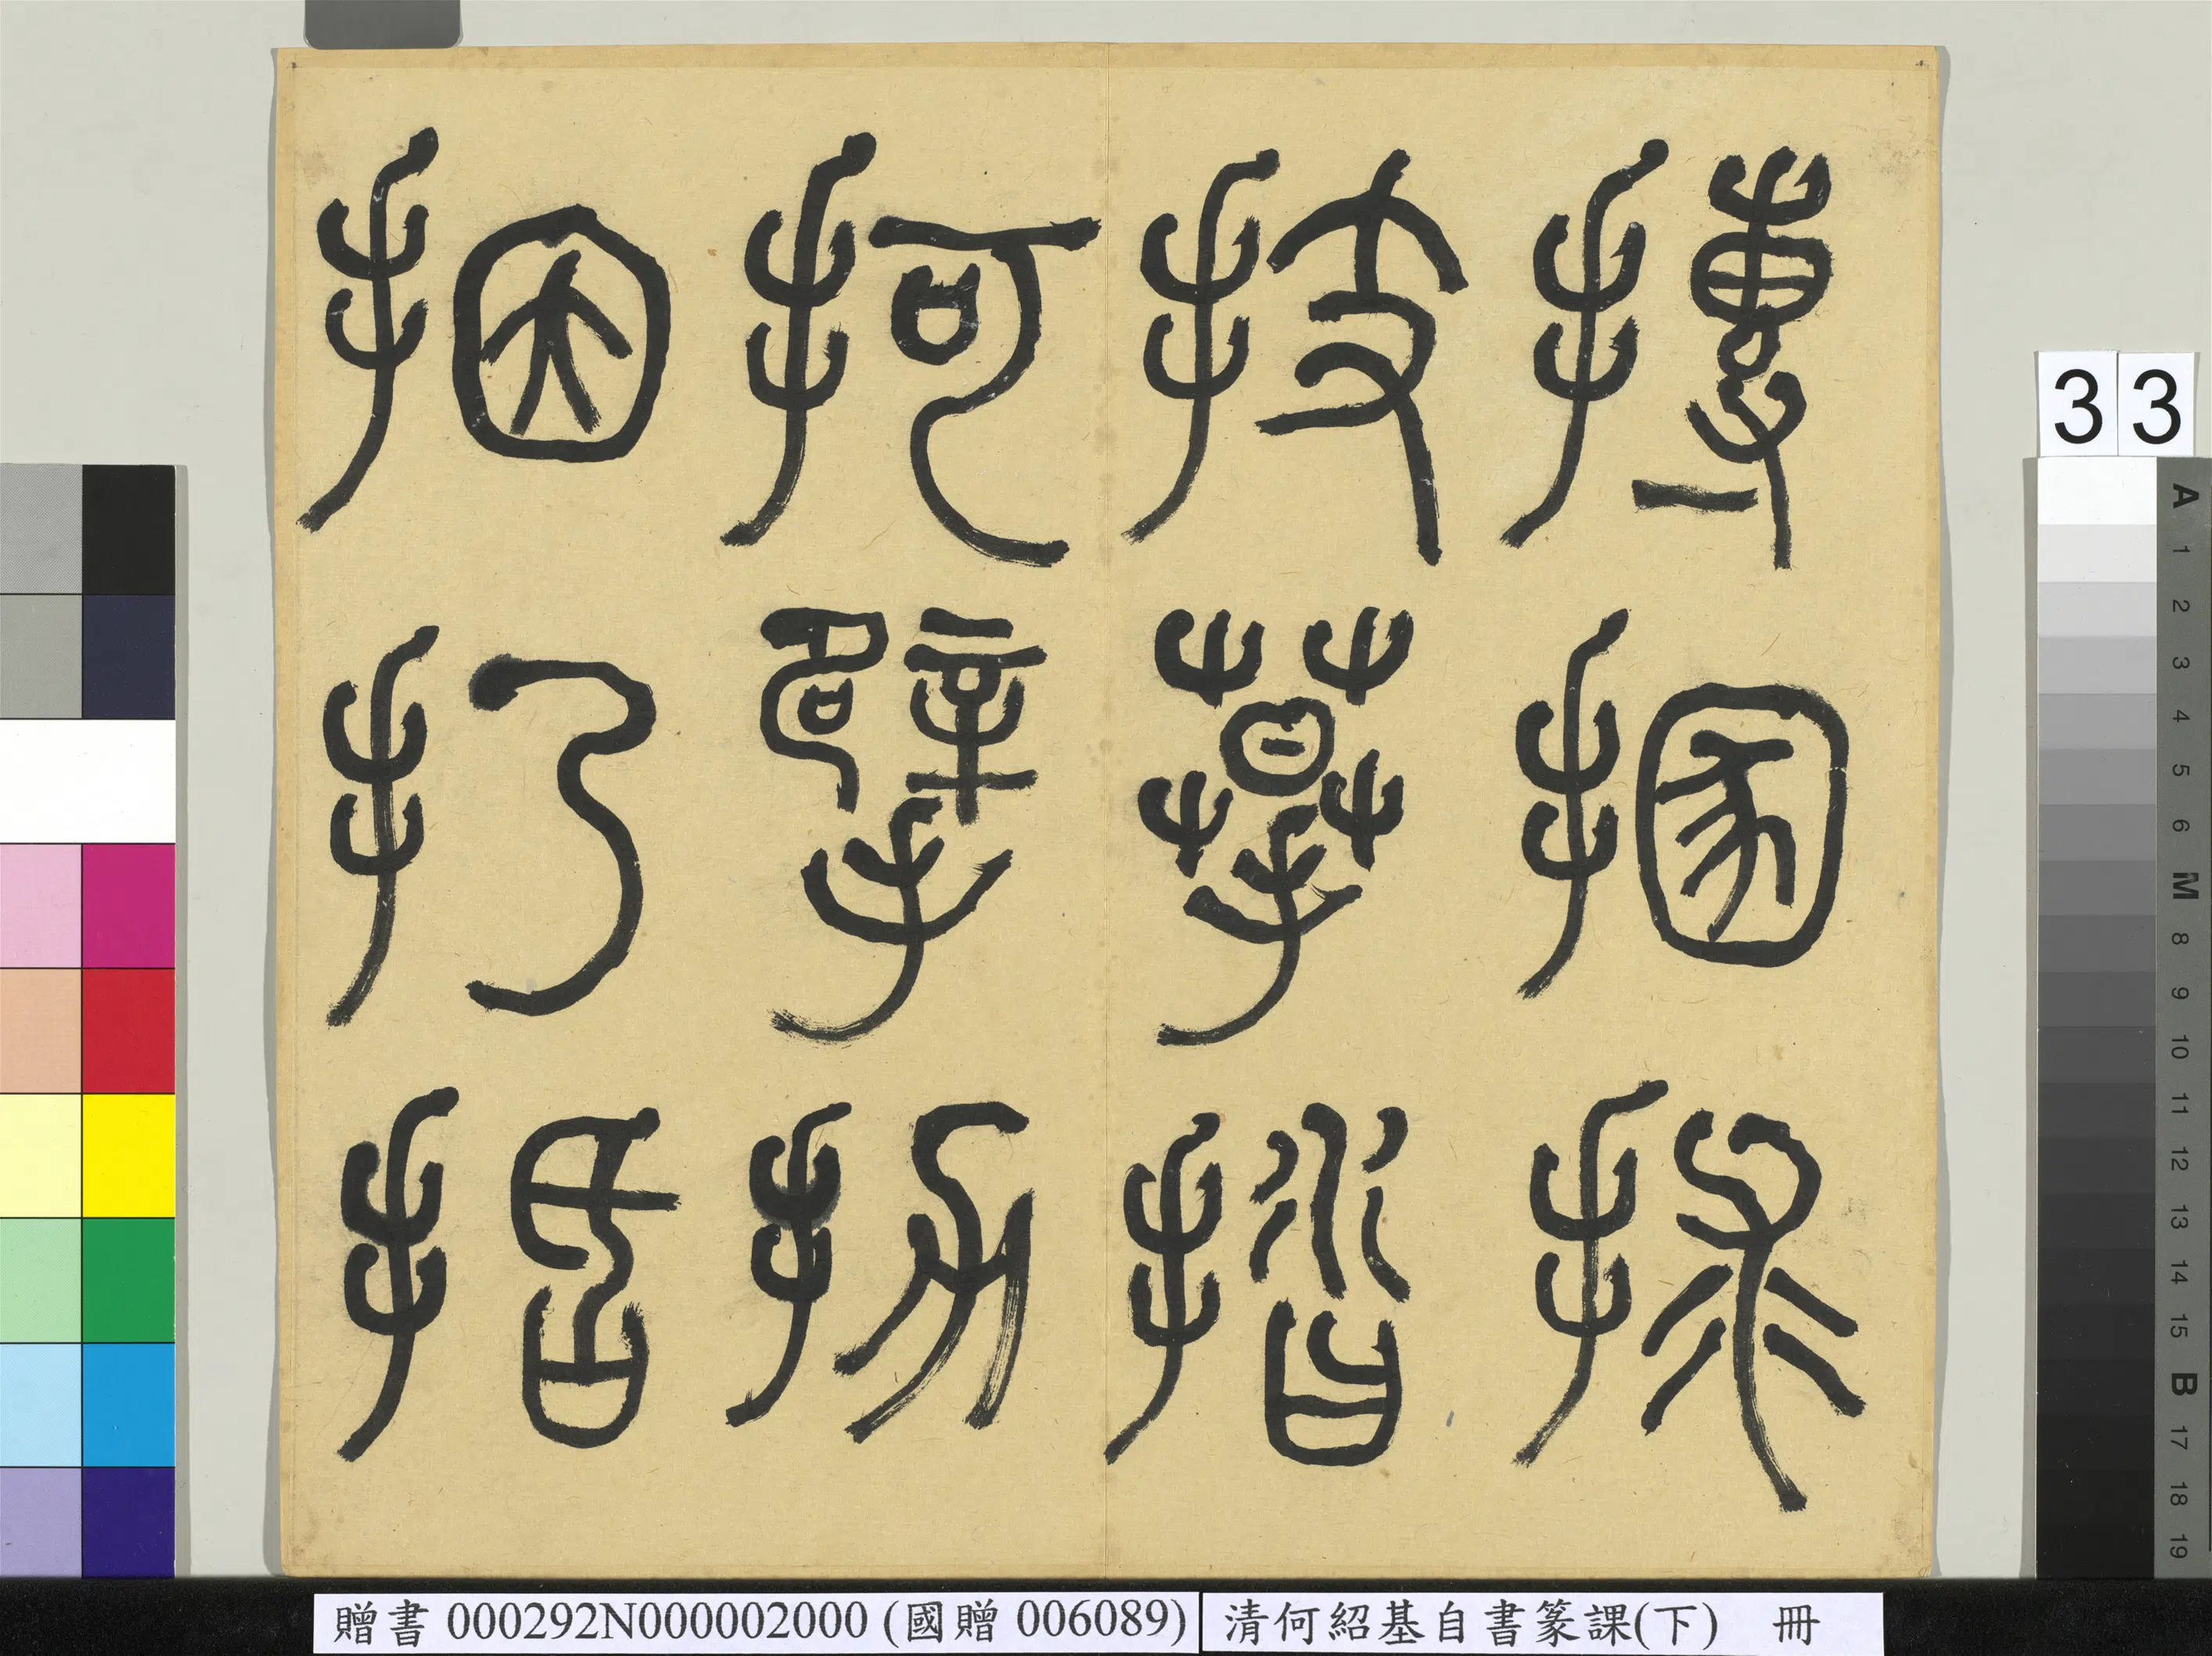 摶㨡捄
技摹
抲擘扐
㧢扔括
33
贈書 000292N000002000 (國贈 006089)
清何紹基自書篆課(下) 冊
A 1 2 3 4 5 6 M 8 9 10 11 12 13 14 15 B 17 18 19